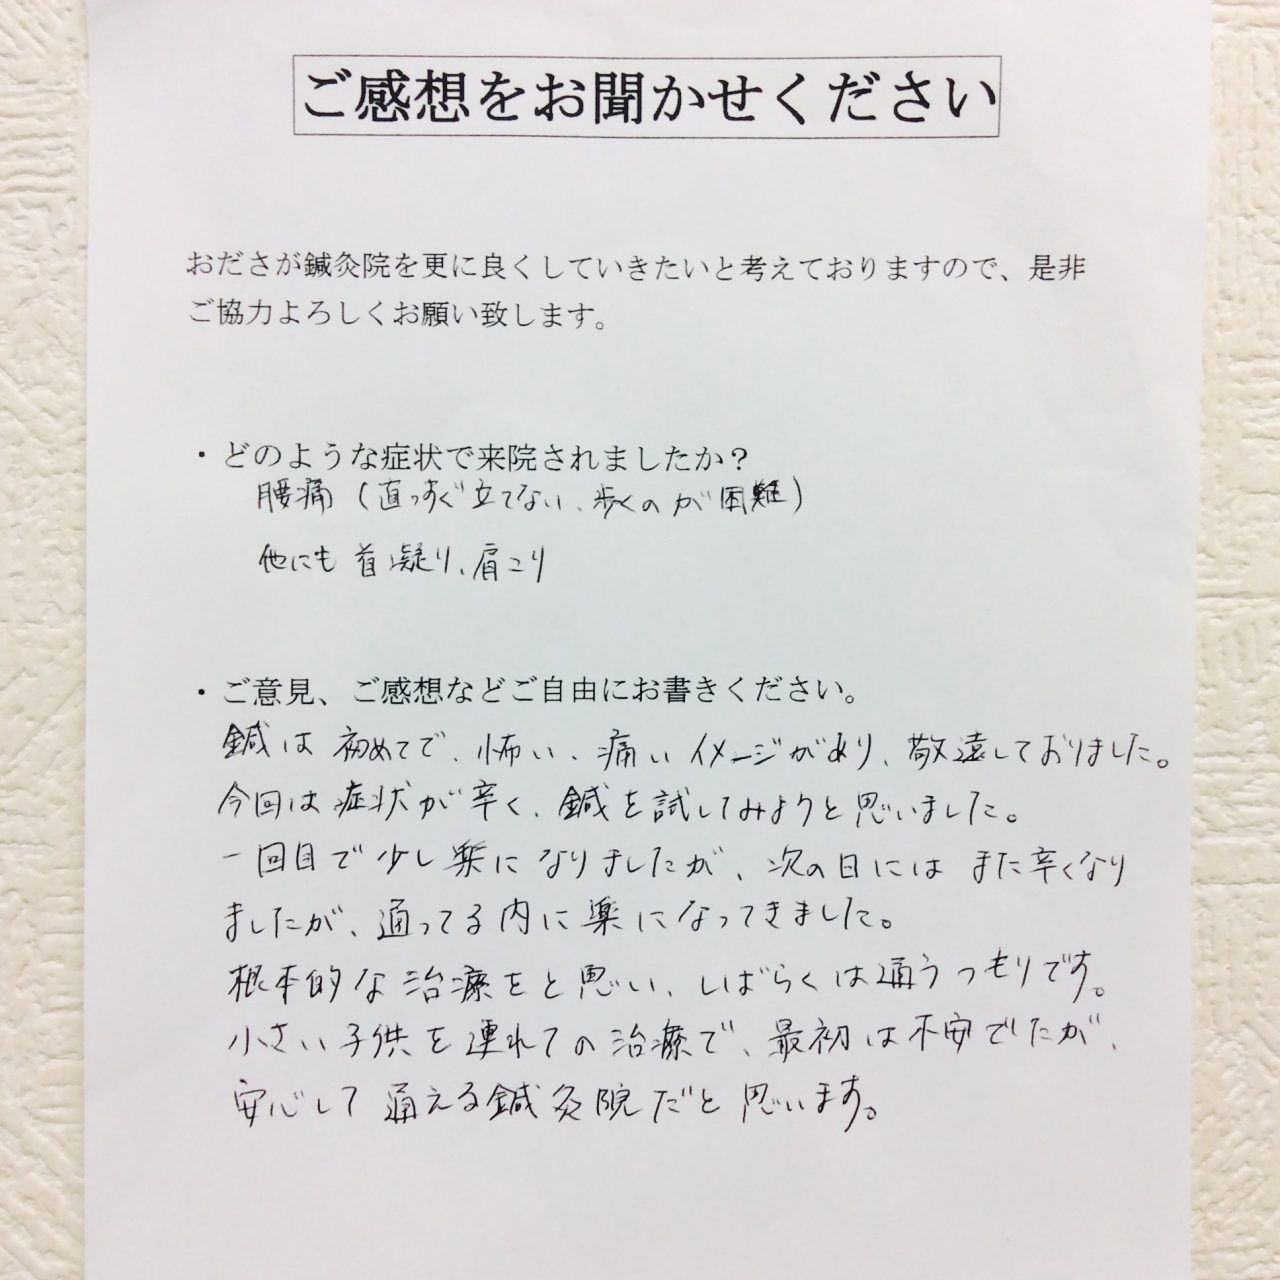 ご感想をお聞かせください
おださが鍼灸院を更に良くしていきたいと考えておりますので、是非
ご協力よろしくお願い致します。
・どのような症状で来院されましたか？
腰痛（直っすぐ立てない、歩くのが困難）
他にも首凝り、肩こり
・ご意見、ご感想などご自由にお書きください。
鍼は初めてで、怖い、痛いイメージがあり、敬遠しておりました。
今回は症状が辛く、鍼を試してみようと思いました。
一回目で少し楽になりましたが、次の日にはまた辛くなり
ましたが、通ってる内に楽になってきました。
根本的な治療をと思い、しばらくは通うつもりです。
小さい子供を連れての治療で、最初は不安でしたが、
安心して通える鍼灸院だと思います。